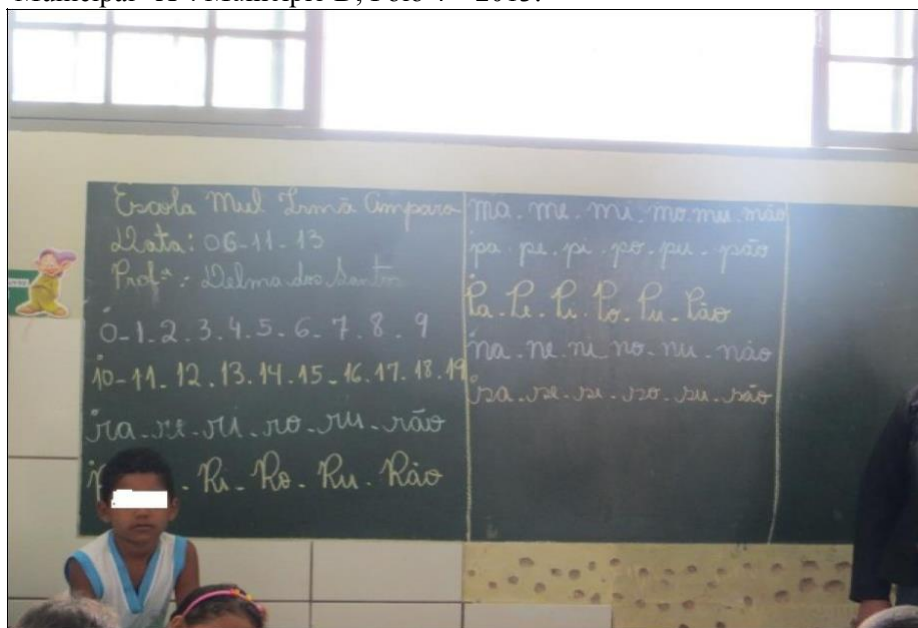 Municipal "A". Município B, Polo 4 – 2013.
Escola Mul Irmã Amparo
Data: 06-11-13
Profª: Delma dos Santos
0-1.2.3.4.5-6-7.8.9
10-11.12.13.14.15-16.17.18.19
ra-re-ri-ro-ru-rão
Ri-Ro-Ru-Rão
ma.me.mi.mo.mu.mão
pa.pe.pi.po.pu.pão
Pa.Pe.Pi.Po.Pu.Pão
na.ne.ni.no.nu.não
sa.se.si.so.su.são